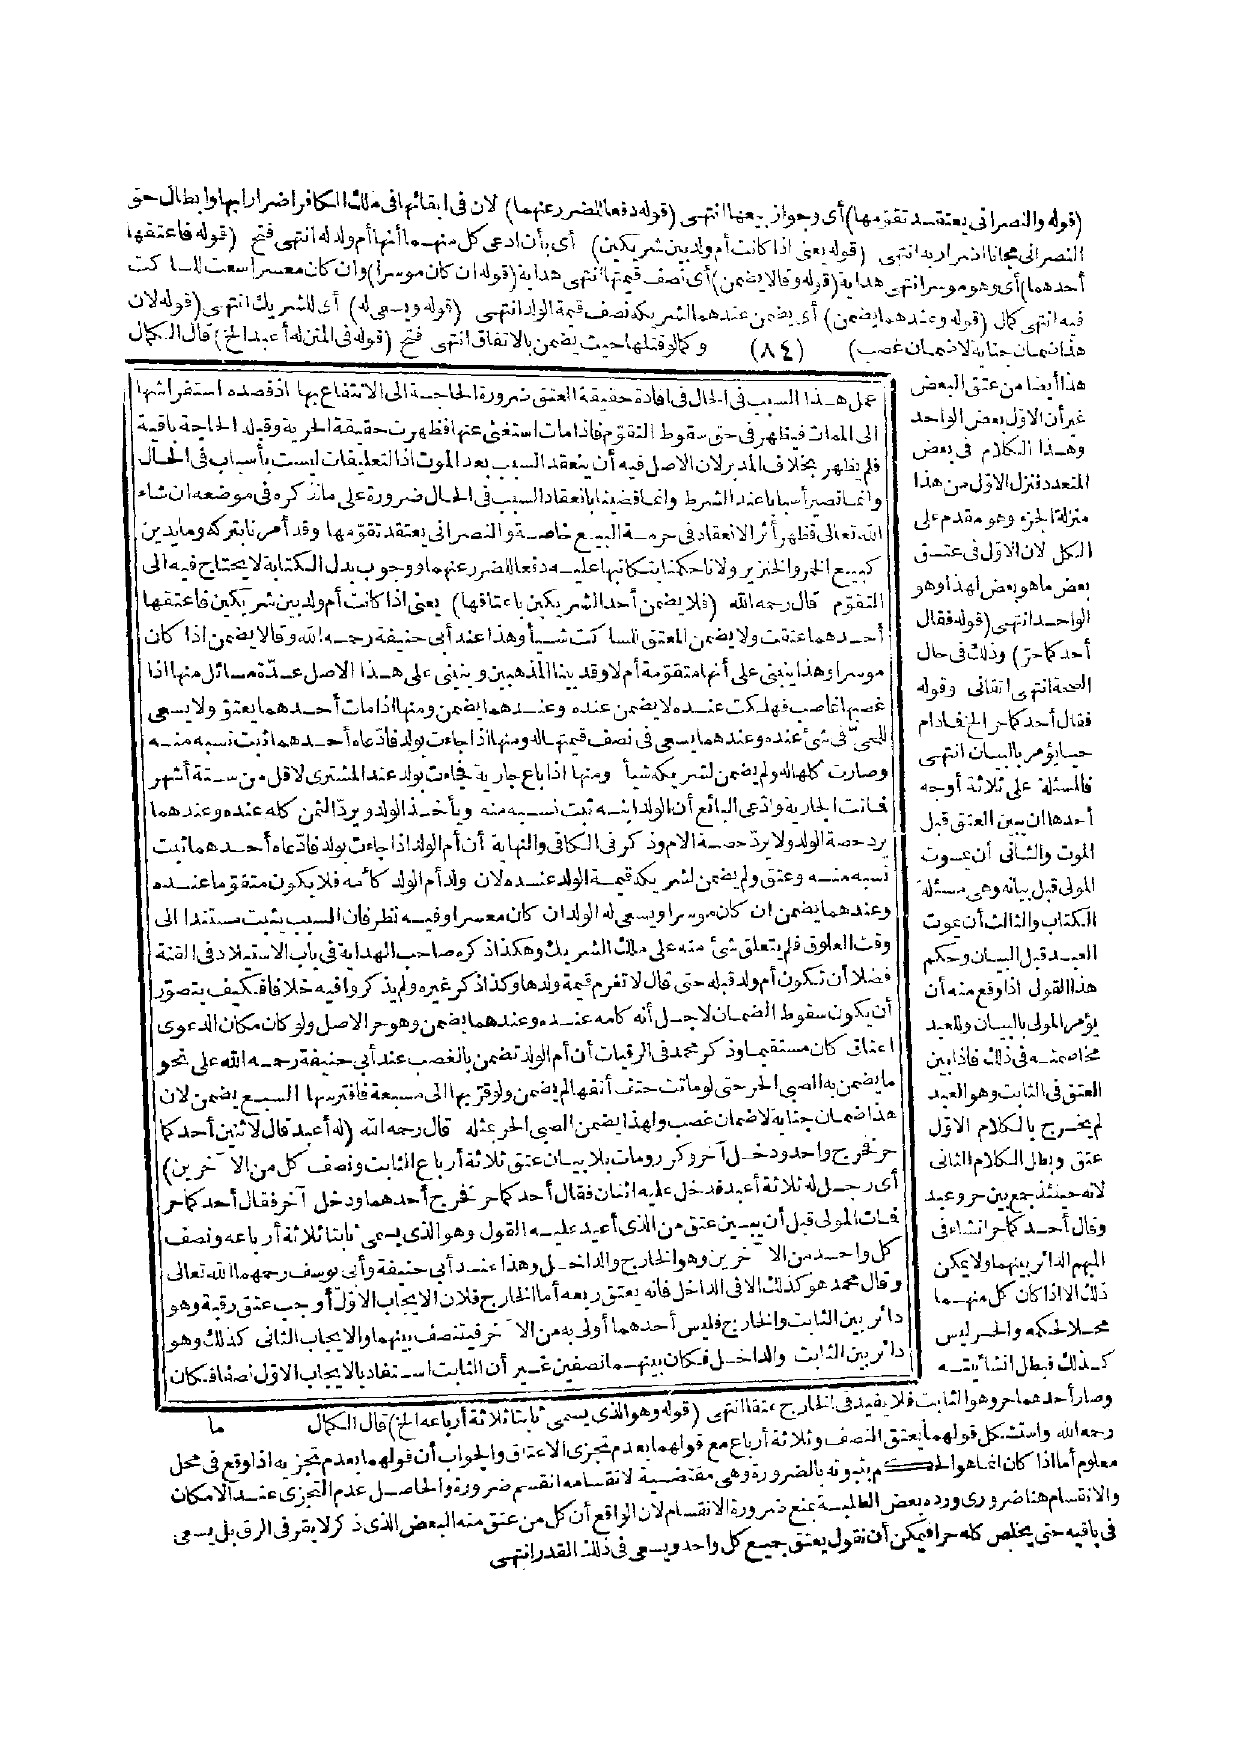 (قوله والنصراني يعتقد تقومها) أي وجواز بيعها انتهى (قوله دفعا للضرر عنهما) لان في ابقائها في ملك الكافر اضرارا بها وابطال حق
النصراني مجانا اضرار به انتهى (قوله يعني اذا كانت أم ولد بين شريكين) أي بأن ادعى كل منهما أنها أم ولد له انتهى فتح (قوله فاعتقها
أحدهما) أي وهو موسر انتهى هداية (قوله وقالا يضمن) أي نصف قيمتها انتهى هداية (قوله ان كان موسرا) وان كان معسرا سعت للساكت
فيه انتهى كال (قوله وعندهما يضمن) أي يضمن عندهما لشريكه نصف قيمة الولد انتهى (قوله ويسعى له) أي للشريك انتهى (قوله لان
هذا ضمان جناية لا ضمان غصب) (٨٤) وكما لو قتلها حيث يضمن بالاتفاق انتهى فتح (قوله في المتن له أعبد الخ) قال الكمال
هذا أيضا من عتق البعض
غير أن الاول بعض الواحد
وهذا الكلام في بعض
المتعدد فنزل الاول من هذا
منزلة الجزء وهو مقدم على
الكل لان الاول في عتق
بعض ما هو بعض لهذا وهو
الواحد انتهى (قوله فقال
أحدكما حر) وذلك في حال
الصحة انتهى اتقاني وقوله
فقال أحدكما حر الخ فمادام
حيا يؤمر بالبيان انتهى
فالمسئلة على ثلاثة أوجه
أحدها ان يبين العتق قبل
الموت والثاني أن يموت
المولى قبل بيانه وهي مسئلة
الكتاب والثالث أن يموت
العبد قبل البيان وحكم
هذا القول اذا وقع منه أن
يؤمر المولى بالبيان وللعبد
مخاصمته في ذلك فاذا بين
العتق في الثابت وهو العبد
لم يخرج بالكلام الاول
عتق وبطل الكلام الثاني
لانه حينئذ جمع بين حر وعبد
وقال أحدكما حر انشاء في
المبهم الدائر بينهما ولا يمكن
ذلك الا اذا كان كل منهما
محلا لحكمه والحر ليس
كذلك فبطل انشائيته
عمل هذا السبب في الحال في افادة حقيقة العتق ضرورة الحاجة الى الانتفاع بها اذ قصده استفراشها
الى الممات فيظهر في حق سقوط التقوم فاذا مات استغنى عنها فظهرت حقيقة الحرية وقبله الحاجة باقية
فلم يظهر بخلاف المدبر لان الاصل فيه أن ينعقد السبب بعد الموت اذ التعليقات ليست بأسباب في الحال
وانما تصير أسبابا عند الشرط وانما قضينا بانعقاد السبب في الحال ضرورة على ما نذكره في موضعه ان شاء
الله تعالى فظهر أثر الانعقاد في حرمة البيع خاصة والنصراني يعتقد تقومها وقد أمرنا بتركه وما يدين
كبيع الخمر والخنزير ولانا حكمنا بتكاتبها عليه دفعا للضرر عنهما ووجوب بدل الكتابة لا يحتاج فيه الى
التقوم قال رحمه الله (فلا يضمن أحد الشريكين باعتاقها) يعني اذا كانت أم ولد بين شريكين فاعتقها
أحدهما عتقت ولا يضمن المعتق للساكت شيأ وهذا عند أبي حنيفة رحمه الله وقالا يضمن اذا كان
موسرا وهذا يبتني على أنها متقومة أم لا وقد بينا المذهبين وينبني على هذا الاصل عدة مسائل منها اذا
غصبها غاصب فهلكت عنده لا يضمن عنده وعندهما يضمن ومنها اذا مات أحدهما يعتق ولا يسعى
للحي في شئ عنده وعندهما يسعى في نصف قيمتها له ومنها اذا جاءت بولد فادعاه أحدهما ثبت نسبه منه
وصارت كلها له ولم يضمن لشريكه شيأ ومنها اذا باع جارية فجاءت بولد عند المشتري لاقل من ستة أشهر
فماتت الجارية وادعى البائع أن الولد ابنه ثبت نسبه منه ويأخذ الولد ويرد الثمن كله عنده وعندهما
يرد حصة الولد ولا يرد حصة الام وذكر في الكافي والنهاية أن أم الولد اذا جاءت بولد فادعاه أحدهما ثبت
نسبه منه وعتق ولم يضمن لشريكه قيمة الولد عنده لان ولد أم الولد كأمه فلا يكون متقوما عنده
وعندهما يضمن ان كان موسرا ويسعى له الولد ان كان معسرا وفيه نظر فان السبب يثبت مستندا الى
وقت العلوق فلم يتعلق شئ منه على ملك الشريك وهكذا ذكره صاحب الهداية في باب الاستيلاد في القنة
فضلا أن تكون أم ولد قبله حتى قال لا تغرم قيمة ولدها وكذا ذكر غيره ولم يذكروا فيه خلافا فكيف يتصور
أن يكون سقوط الضمان لاجل أنه كامه عنده وعندهما يضمن وهو حر الاصل ولو كان مكان الدعوى
اعتاق كان مستقيما وذكر محمد في الرقيات أن أم الولد تضمن بالغصب عند أبي حنيفة رحمه الله على نحو
ما يضمن به الصبي الحر حتى لو ماتت حتف أنفها لم يضمن ولو قربها الى مسبعة فافترسها السبع يضمن لان
هذا ضمان جناية لا ضمان غصب ولهذا يضمن الصبي الحر بمثله قال رحمه الله (له أعبد قال لاثنين أحدكما
حر فخرج واحد ودخل آخر وكرر ومات بلا بيان عتق ثلاثة أرباع الثابت ونصف كل من الآخرين)
أي رجل له ثلاثة أعبد فدخل عليه اثنان فقال أحدكما حر فخرج أحدهما ودخل آخر فقال أحدكما حر
فمات المولى قبل أن يبين عتق من الذي أعيد عليه القول وهو الذي يسمى ثابتا ثلاثة أرباعه ونصف
كل واحد من الآخرين وهو الخارج والداخل وهذا عند أبي حنيفة وأبي يوسف رحمهما الله تعالى
وقال محمد هو كذلك الا في الداخل فانه يعتق ربعه أما الخارج فلان الايجاب الاول أوجب عتق رقبة وهو
دائر بين الثابت والخارج فليس أحدهما أولى به من الآخر فيتنصف بينهما والايجاب الثاني كذلك وهو
دائر بين الثابت والداخل فكان بينهما نصفين غير أن الثابت استفاد بالايجاب الاول نصفا فكان
وصار أحدهما حر وهو الثابت فلا يفيد في الخارج عتقا انتهى (قوله وهو الذي يسمى ثابتا ثلاثة أرباعه الخ) قال الكمال ما
رحمه الله واستشكل قولهما يعتق النصف وثلاثة أرباع مع قولهما بعدم تجزى الاعتاق والجواب أن قولهما بعدم تجزيه اذا وقع في محل
معلوم أما اذا كان انما هو الحكم بثبوته بالضرورة وهي مقتضية لانقسامه انقسم ضرورة والحاصل عدم التجزى عند الامكان
والانقسام هنا ضروري ورده بعض الطلبة بمنع ضرورة الانقسام لان الواقع أن كل من عتق منه البعض الذي ذكر لا يقر في الرق بل يسعى
في باقيه حتى يخلص كله حرا فيمكن أن نقول يعتق جميع كل واحد ويسعى في ذلك القدر انتهى